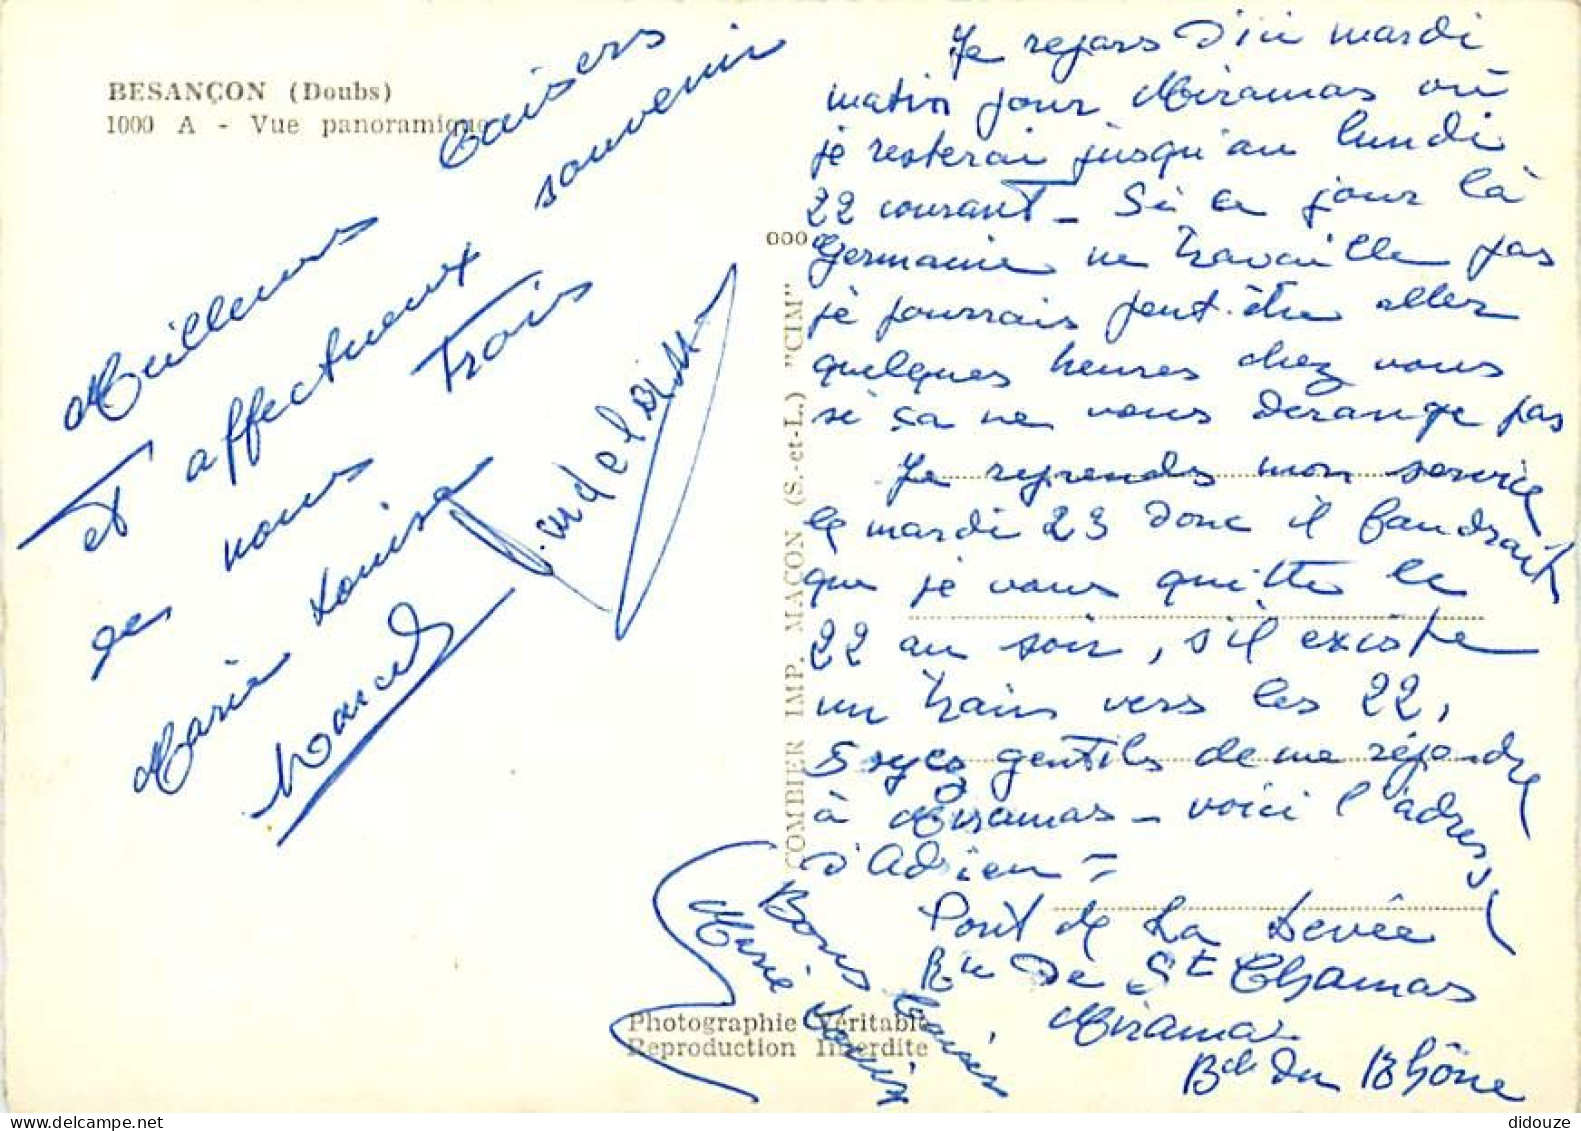 BESANÇON (Doubs)
1000 A - Vue panoramique
Meilleurs baisers
et affectueux souvenir
de nous trois
Marie Louise
000
COMBIER IMP. MACON (S.-et-L.) "CIM"
Photographie Véritable
Reproduction Interdite
Je repars d'ici mardi
matin pour Miramas où
je resterai jusqu'au lundi
22 courant - Si ce jour là
Germaine ne travaille pas
je pourrais peut-être aller
quelques heures chez vous
si ça ne vous dérange pas
Je reprends mon service
le mardi 23 donc il faudrait
que je vous quitte le
22 au soir, s'il existe
un train vers les 22,
Soyez gentils de me répondre
à Miramas - voici l'adresse
d'Adrien =
Pont de La Levée
Rte De St Chamas
Miramas
Bch du Rhône
Bons baisers
Marie Louise
didouze